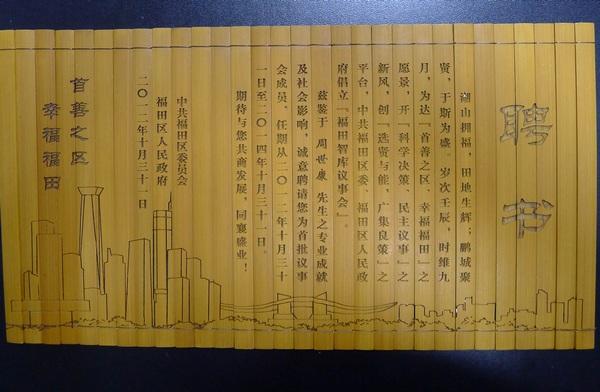 聘书
湖山拥福，田地生辉；鹏城聚
贤，于斯为盛。岁次壬辰，时维九
月，为达「首善之区、幸福福田」之
愿景，开「科学决策、民主议事」之
新风，创「选贤与能，广集良策」之
平台，中共福田区委、福田区人民政
府倡立「福田智库议事会」。
兹鉴于 周世康 先生之专业成就
及社会影响，诚意聘请您为首批议事
会成员，任期从二〇一二年十月三十
一日至二〇一四年十月三十一日。
期待与您共商发展，同襄盛业！
中共福田区委员会
福田区人民政府
二〇一二年十月三十一日
首善之区
幸福福田